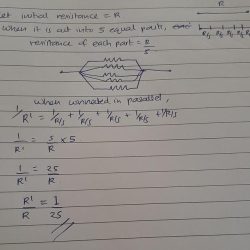 Let initial resistance = R
R
When it is cut into 5 equal parts,
R/5 R/5 R/5 R/5 R/5
resistance of each part = R/5
When connected in parallel,
1/R' = 1/R/5 + 1/R/5 + 1/R/5 + 1/R/5 + 1/R/5
1/R' = 5/R × 5
1/R' = 25/R
R'/R = 1/25